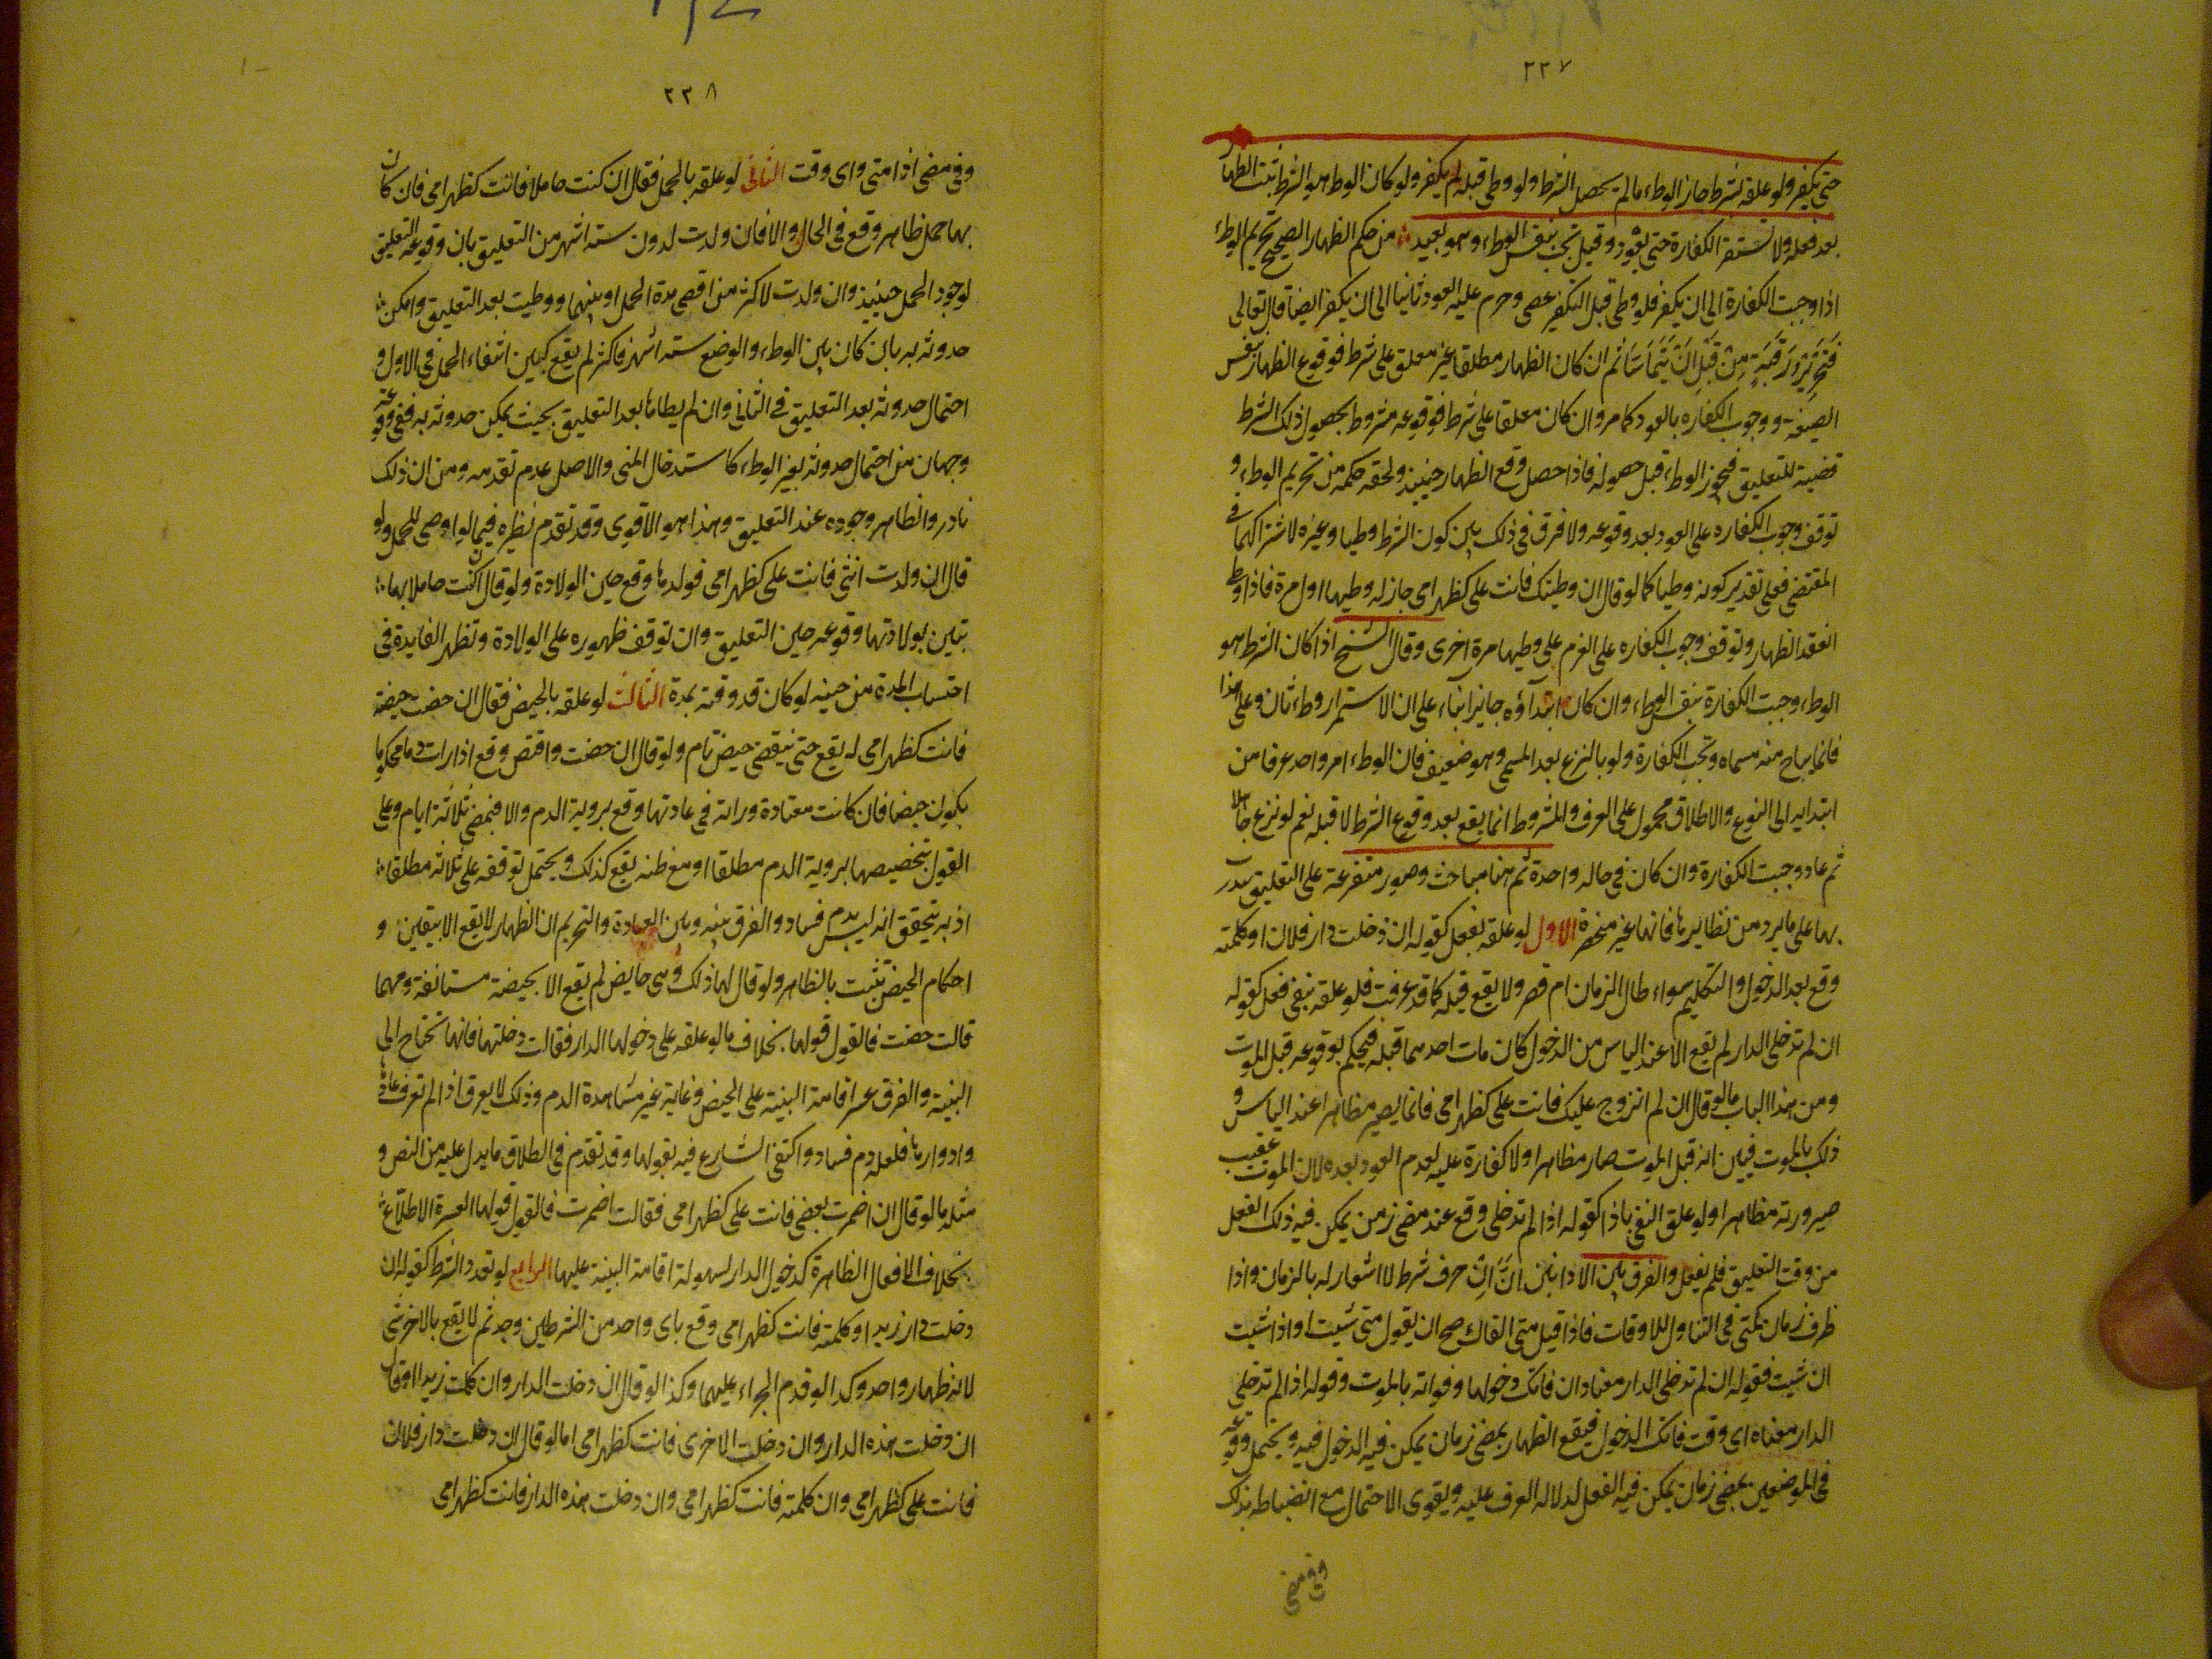 ٢٢٧
حتى يكفر ولو علقه بشرط جاز الوطء ما لم يحصل الشرط ولو وطى قبله لم يكفر ولو كان الوطء هو الشرط ثبت الظهار
بعد فعله ولا تستقر الكفارة حتى يعود وقيل تجب بنفس الوطء وهو بعيد من حكم الظهار الصحيح تحريم الوطء
اذا وجبت الكفارة الى ان يكفر فلو وطى قبل التكفير عصى وحرم عليه العود ثانيا الى ان يكفر ايضا قال تعالى
فَتَحْرِيرُ رَقَبَةٍ مِنْ قَبْلِ اَنْ يَتَمَاسَّا ثم ان كان الظهار مطلقا غير معلق على شرط فوقوع الظهار بنفس
الصيغة ووجوب الكفاره بالعود كما مر وان كان معلقا على شرط فوقوعه مشروط بحصول ذلك الشرط
قضية للتعليق فيجوز الوطء قبل حصوله فاذا حصل وقع الظهار حينئذ ولحقه حكمه من تحريم الوطء و
توقف وجوب الكفاره على العود بعد وقوعه ولا فرق في ذلك بين كون الشرط وطيا وغيره لاشتراكهما في
المقتضى فعلى تقدير كونه وطيا كما لو قال ان وطيتك فانت على كظهر امى جاز له وطيها اول مرة فاذا وطى
انعقد الظهار وتوقف وجوب الكفاره على العزم على وطيها مرة اخرى وقال الشيخ اذا كان الشرط هو
الوطء وجبت الكفارة بنفس الوطء وان كان ابتداؤه جايزا بناء على ان الاستمرار وطء ثان وعلى هذا
فانما يباح منه مسماه وتجب الكفارة ولو بالنزع بعد المسمى وهو ضعيف فان الوطء امر واحد عرفا من
ابتدايه الى النزع والاطلاق محمول على العرف والمشروط انما يقع بعد وقوع الشرط لا قبله نعم لو نزع كاملا
ثم عاد وجبت الكفارة وان كان في حاله واحدة ثم هنا مباحث وصور متفرعة على التعليق
بها على ما يرد من نظايرها فانها غير منحصرة الاول لو علقه بفعل كقوله ان دخلت دار فلان او كلمته
وقع بعد الدخول والتكليم سواء طال الزمان ام قصر ولا يقع قبله كما قد عرفت فلو علقه بنفى فعل كقوله
ان لم تدخلى الدار لم يقع الا عند الياس من الدخول كان مات احدهما قبله فيحكم بوقوعه قبل الموت
ومن هذا الباب ما لو قال ان لم اتزوج عليك فانت على كظهر امى فانما يصير مظاهرا عند الياس و
ذلك بالموت فيبين انه قبل الموت صار مظاهرا ولا كفارة عليه لعدم العود بعده لان الموت عقيب
صيرورته مظاهرا ولو علق النفى باذا كقوله اذا لم تدخلى وقع عند مضى زمن يمكن فيه ذلك الفعل
من وقت التعليق فلم يفعل والفرق بين الاداتين اَنَّ اِنْ حرف شرط لا اشعار له بالزمان واذا
ظرف زمان كمتى في التناول للاوقات فاذا قيل متى القاك صح ان يقول متى شيت او اذا شيت
ان شيت فقوله ان لم تدخلى الدار معناه ان فاتك دخولها وفواته بالموت وقوله اذا لم تدخلى
الدار معناه اى وقت فاتك الدخول فيقع الظهار بمضى زمان يمكن فيه الدخول فيه ويحتمل وقوعه
في الموضعين بمضى زمان يمكن فيه الفعل لدلالة العرف عليه ويقوى الاحتمال مع انضباطه بذلك
وفى مضى
٢٢٨
وفى مضى اذا متى واى وقت الثانى لو علقه بالحمل فقال ان كنت حاملا فانت كظهر امى فان كان
بها حمل ظاهر وقع في الحال والا فان ولدت لدون ستة اشهر من التعليق بان وقوعه التعليق
لوجود الحمل حينئذ وان ولدت لاكثر من اقصى مدة الحمل او بينهما ووطيت بعد التعليق وامكن
حدوثه به بان كان بين الوطء والوضع ستة اشهر فاكثر لم يقع لتبين انتفاء الحمل في الاول و
احتمال حدوثه بعد التعليق في الثانى وان لم يطاها بعد التعليق بحيث يمكن حدوثه به ففى وقوعه
وجهان من احتمال حدوثه بغير الوطء كاستدخال المنى والاصل عدم تقدمه ومن ان ذلك
نادر والظاهر وجوده عند التعليق وهذا هو الاقوى وقد تقدم نظيره فيما لو اوصى للحمل ولو
قال ان ولدت انثى فانت على كظهر امى فولدها وقع حين الولادة ولو قال ان كنت حاملا بها
تبين بولادتها وقوعه حين التعليق وان توقف ظهوره على الولادة وتظهر الفايدة فى
احتساب المدة من حينه لو كان قد وقته بمدة الثالث لو علقه بالحيض فقال ان حضت حيضة
فانت كظهر امى لم يقع حتى ينقضى حيض تام ولو قال ان حضت واقتصر وقع اذا رات دما محكوما
بكونه حيضا فان كانت معتادة وراته في عادتها وقع بروية الدم والا فبمضى ثلاثة ايام وعلى
القول بتحيضها بروية الدم مطلقا او مع ظنه يقع كذلك ويحتمل توقفه على ثلاثة مطلقا
اذ به يتحقق انه ليس بدم فساد والفرق بينه وبين العبادة والتحريم ان الظهار لا يقع الا بيقين و
احكام الحيض تثبت بالظاهر ولو قال لها ذلك وهى حايض لم يقع الا بحيضة مستانفة ومهما
قالت حضت فالقول قولها بخلاف ما لو علقه على دخولها الدار فقالت دخلتها فانها تحتاج الى
البينة والفرق عسر اقامة البينة على الحيض وغايته غير مشاهدة الدم وذلك لا يعرف اذا لم تعرف عادتها
وادوارها فلعله دم فساد واكتفى الشارع فيه بقولها وقد تقدم في الطلاق ما يدل عليه من النص و
مثله ما لو قال ان اضمرت بغضى فانت على كظهر امى فقالت اضمرت فالقول قولها لعسرة الاطلاع
بخلاف الافعال الظاهرة كدخول الدار لسهولة اقامة البينة عليها الرابع لو تعدد الشرط كقوله ان
دخلت دار زيد او كلمته فانت كظهر امى وقع باى واحد من الشرطين وجد ثم لا يقع بالاخر شى
لانه ظهار واحد وكذا لو قدم الجزاء عليهما وكذا لو قال ان دخلت الدار وان كلمت زيدا او قال
ان دخلت هذه الدار وان دخلت الاخرى فانت كظهر امى اما لو قال ان دخلت دار فلان
فانت على كظهر امى وان كلمته فانت كظهر امى وان دخلت هذه الدار فانت كظهر امى